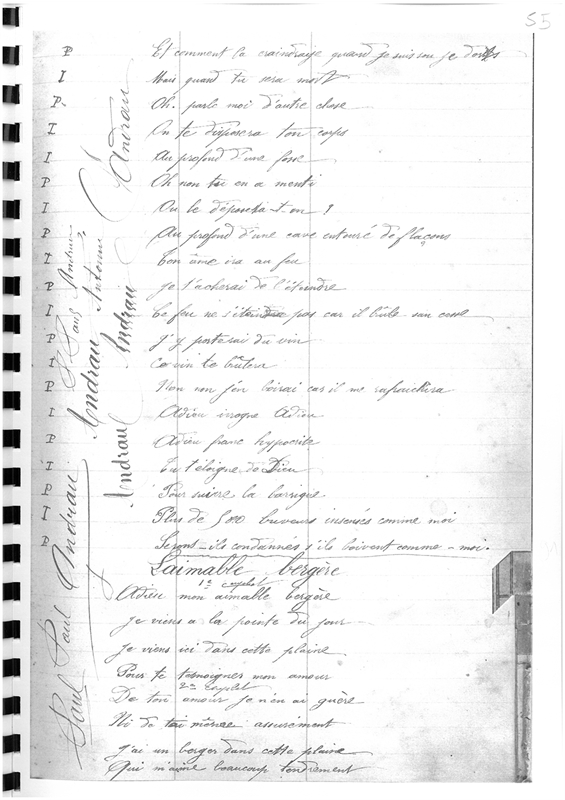 55
P Et comment la craindraye quand je suis sou je dors
I Mais quand tu sera mort
P Oh. parle moi d'autre chose
I On te disposera ton corps
I Au profond d'une fosse
P Oh non tai en a menti
I Ou le déposera-t-on ?
P Au profond d'une cave entouré de flaçons
I Ton âme ira au feu
P Je t'acherai de l'éteindre
I Ce feu ne s'éteindra pas car il brûle san cesse
P J'y porterai du vin
I Ce vin te brulera
P Non non j'en boirai car il me rafraichira
I Adieu ivrogne Adieu
P Adieu franc hypocrite
I Tu t'éloigne de Dieu
P Pour suivre la barrique
I Plus de 500 buveurs insensés comme moi
P Serons-ils condannés s'ils boivent comme-moi.
L'aimable bergère
1er couplet
Adieu mon aimable bergère
Je viens a la pointe du jour
Je viens ici dans cette plaine
Pour te témoigner mon amour
2me couplet
De ton amour je n'en ai guère
Ni de tai même assurément
J'ai un berger dans cette plaine
Qui m'aime beaucoup tendrement
Paul Paul Andrau
Paul Andrau
Andrau Antonin
Andrau Andrau
Andrau